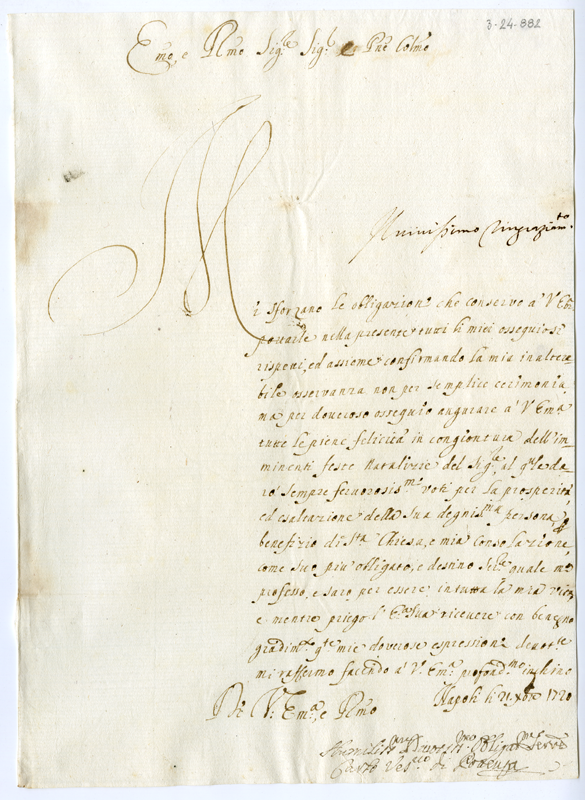 3-24-882
Emo, e Rmo Sig.re Sig.r e Pne Colmo
Vivissimo ringraziam.to
Mi sforzano le obligazioni che conservo a V. Em.
portarle nella presente tutti li miei ossequiosi
rispetti, ed assieme confirmando la mia inaltera=
bile osservanza non per semplice cerimonia,
ma per doveroso ossequio augurare a V. Ema
tutte le piene felicità in congiontura dell'im=
minenti feste Natalizie del Sig.re, al q.le da
rò sempre fervorosis.mi voti per la prosperità,
ed esaltazione della sua degnis.ma persona a
benefizio di S.ta Chiesa, e mia consolazione,
come suo più obligato, e quale mi
professo, e sarò per essere in tutta la mia vita,
e mentre priego l'Em. Sua ricevere con benegno
gradim.to q.te mie doverose espressioni
mi raffermo facendo a V. Em.a profond.mo inchino
Napoli li 21 Xbre 1720
Di V. Em.a, e Rmo
Umiliss.mo Devotiss.mo Obligat.mo Serv.e
Carlo Vesc.o di